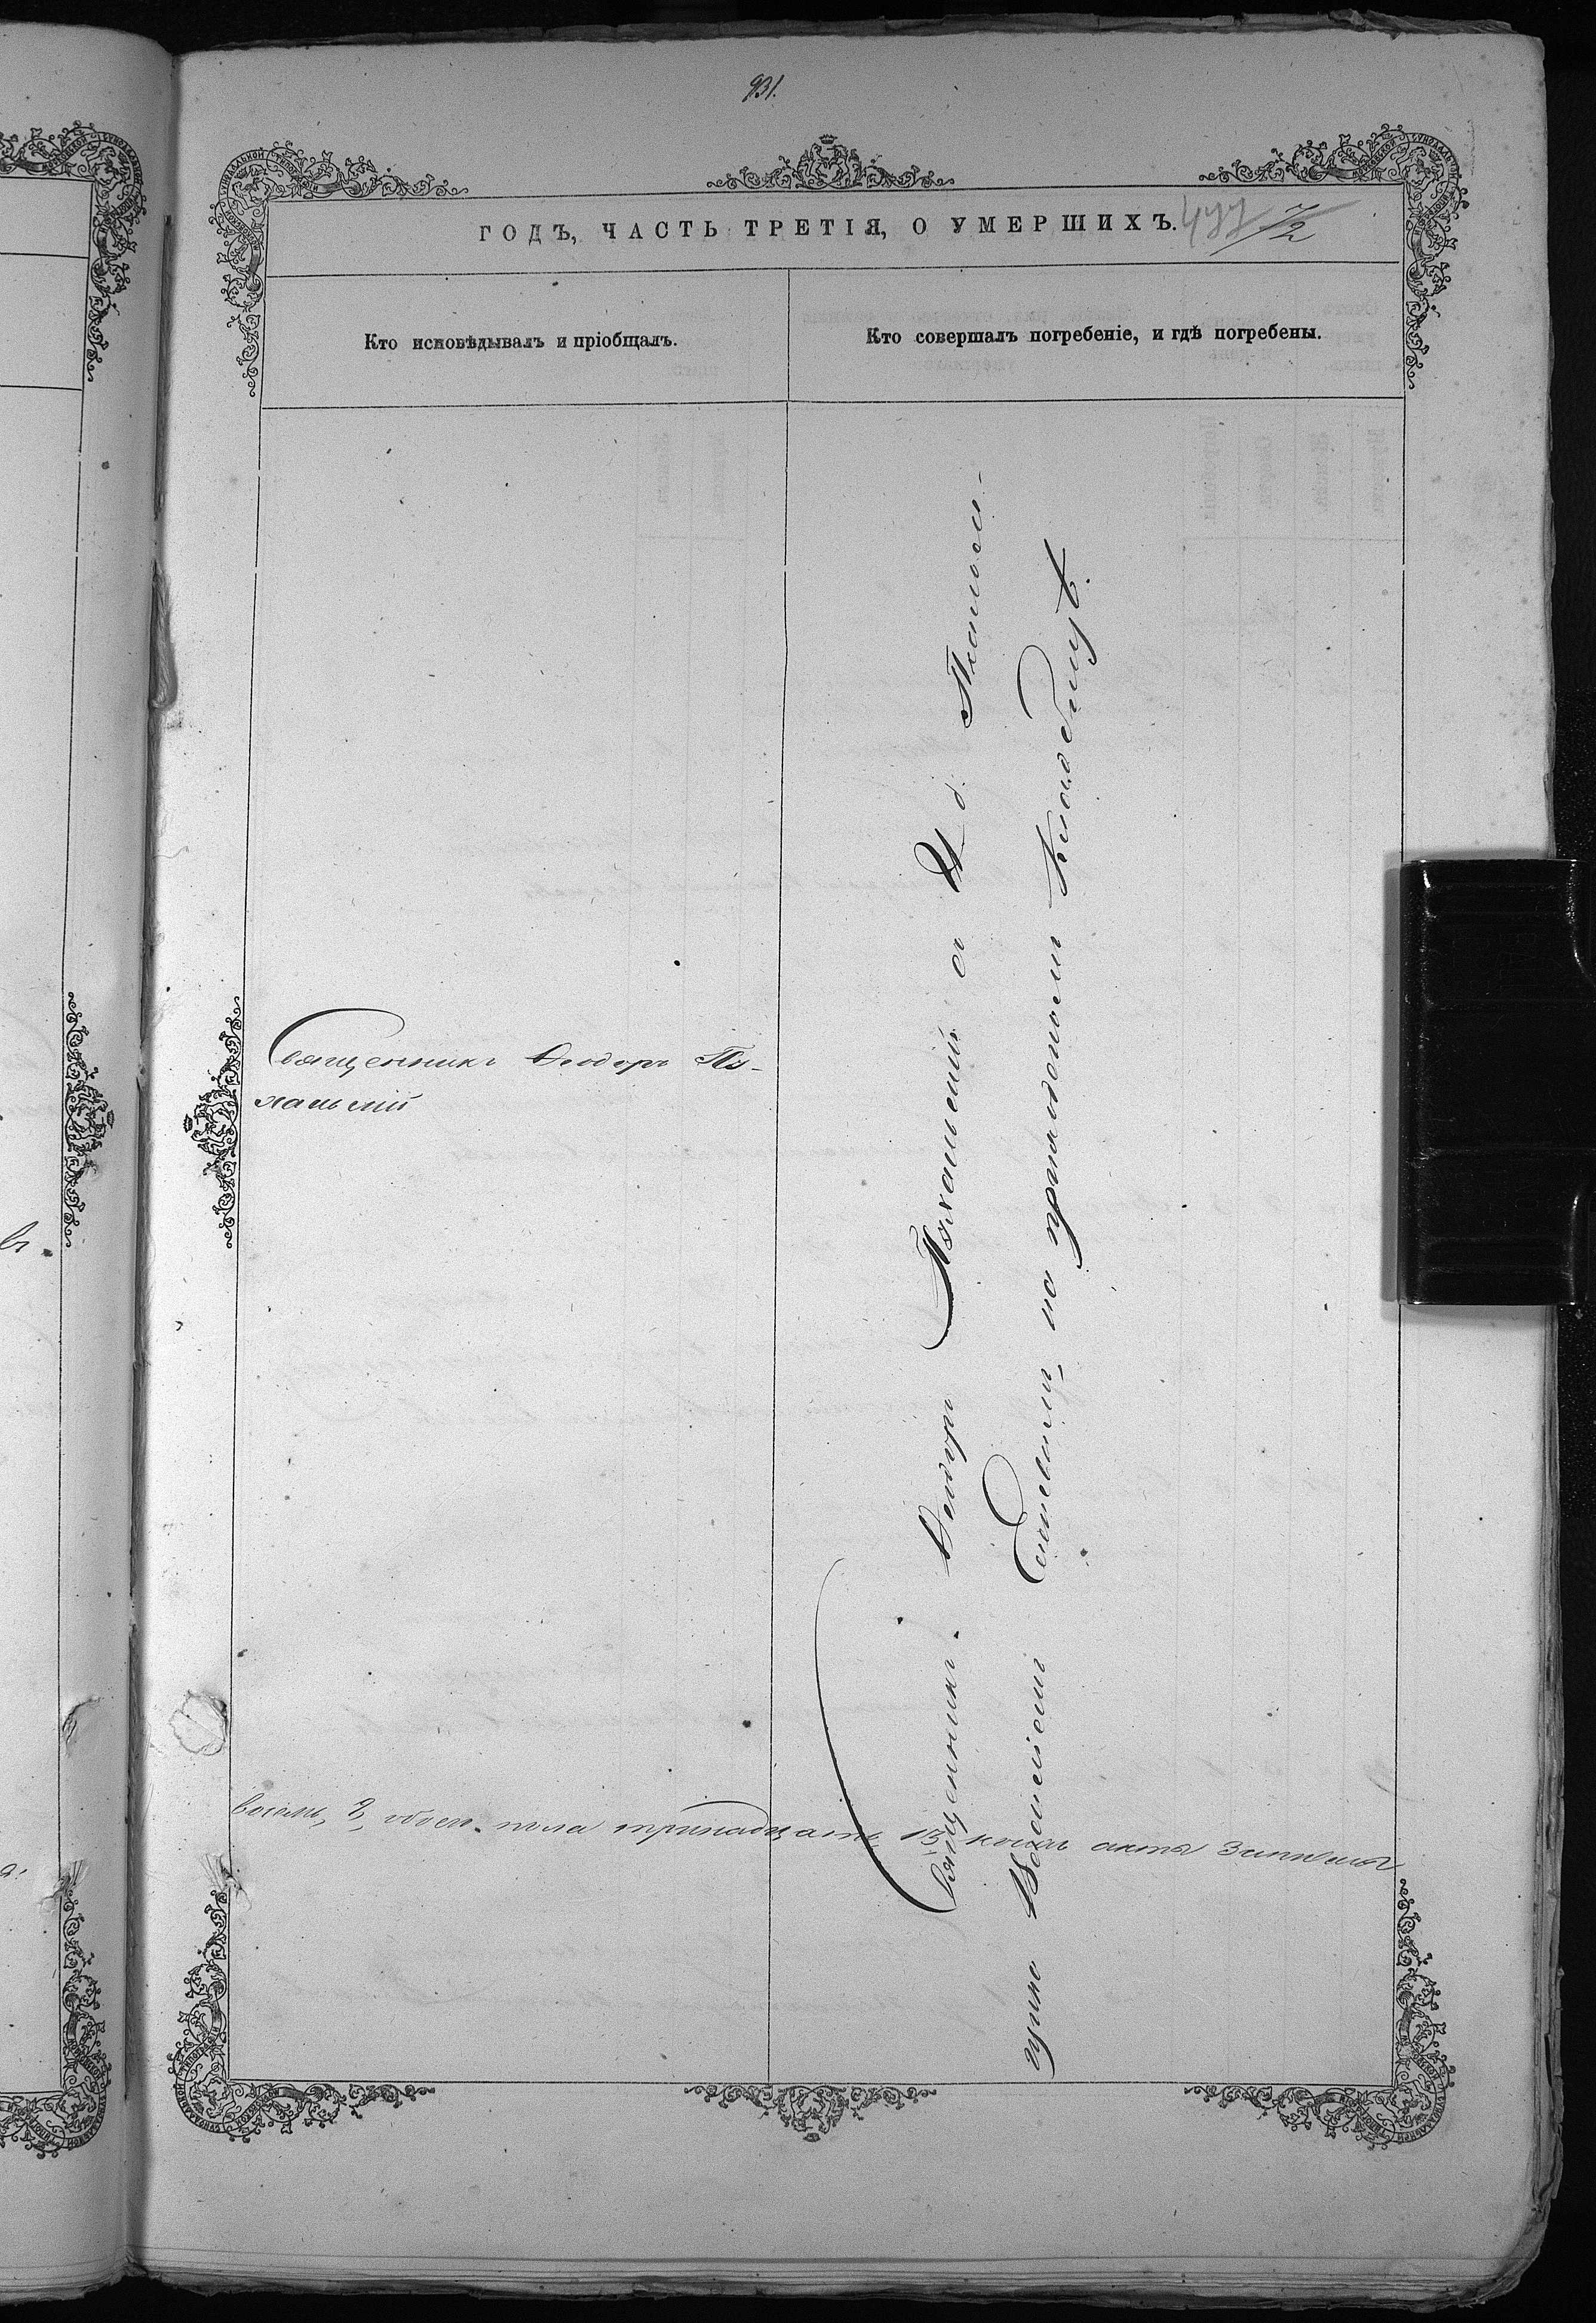 931.
ГОДЪ, ЧАСТЬ ТРЕТІЯ, О УМЕРШИХЪ.
Кто исповѣдывалъ и пріобщалъ.
Кто совершалъ погребеніе, и гдѣ погребены.
Священникъ Ѳеодоръ Пы-
хальскій
Священникъ Ѳеодоръ Пыхальскій съ И. д. Псалом-
щика Василіемъ на приходскомъ Кладбищѣ.
восемь, 8, обоего пола тринадцать 13 коихъ акты записаны